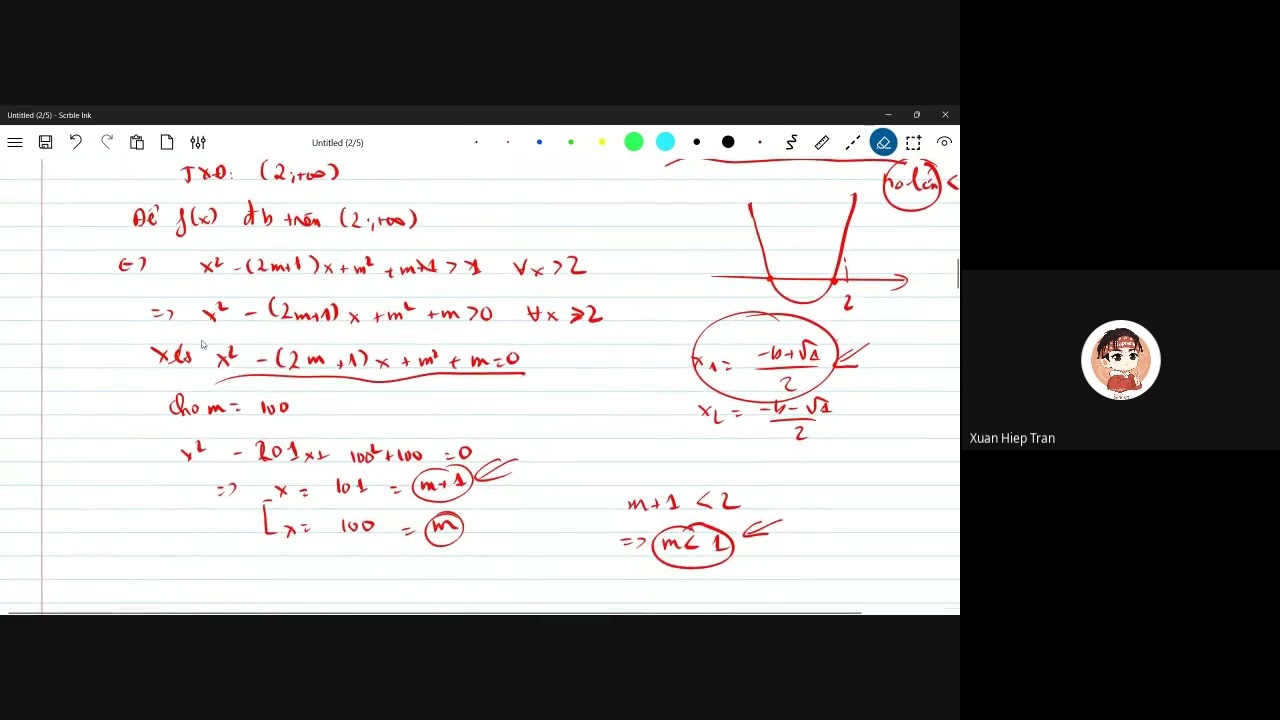 Untitled (2/5) - Scrble Ink
Untitled (2/5)
TXĐ: (2;+∞)
Để f(x) đb trên (2;+∞)
<=> x² - (2m+1)x + m² + m+1 > 1 ∀x > 2
=> x² - (2m+1)x + m² + m > 0 ∀x ≥ 2
Xét x² - (2m+1)x + m² + m = 0
Cho m = 100
x² - 201x + 100² + 100 = 0
=> x = 101 = m+1
x = 100 = m
no lớn <
2
x₁ = (-b+√Δ)/2
x₂ = (-b-√Δ)/2
m+1 < 2
=> m < 1
Xuan Hiep Tran